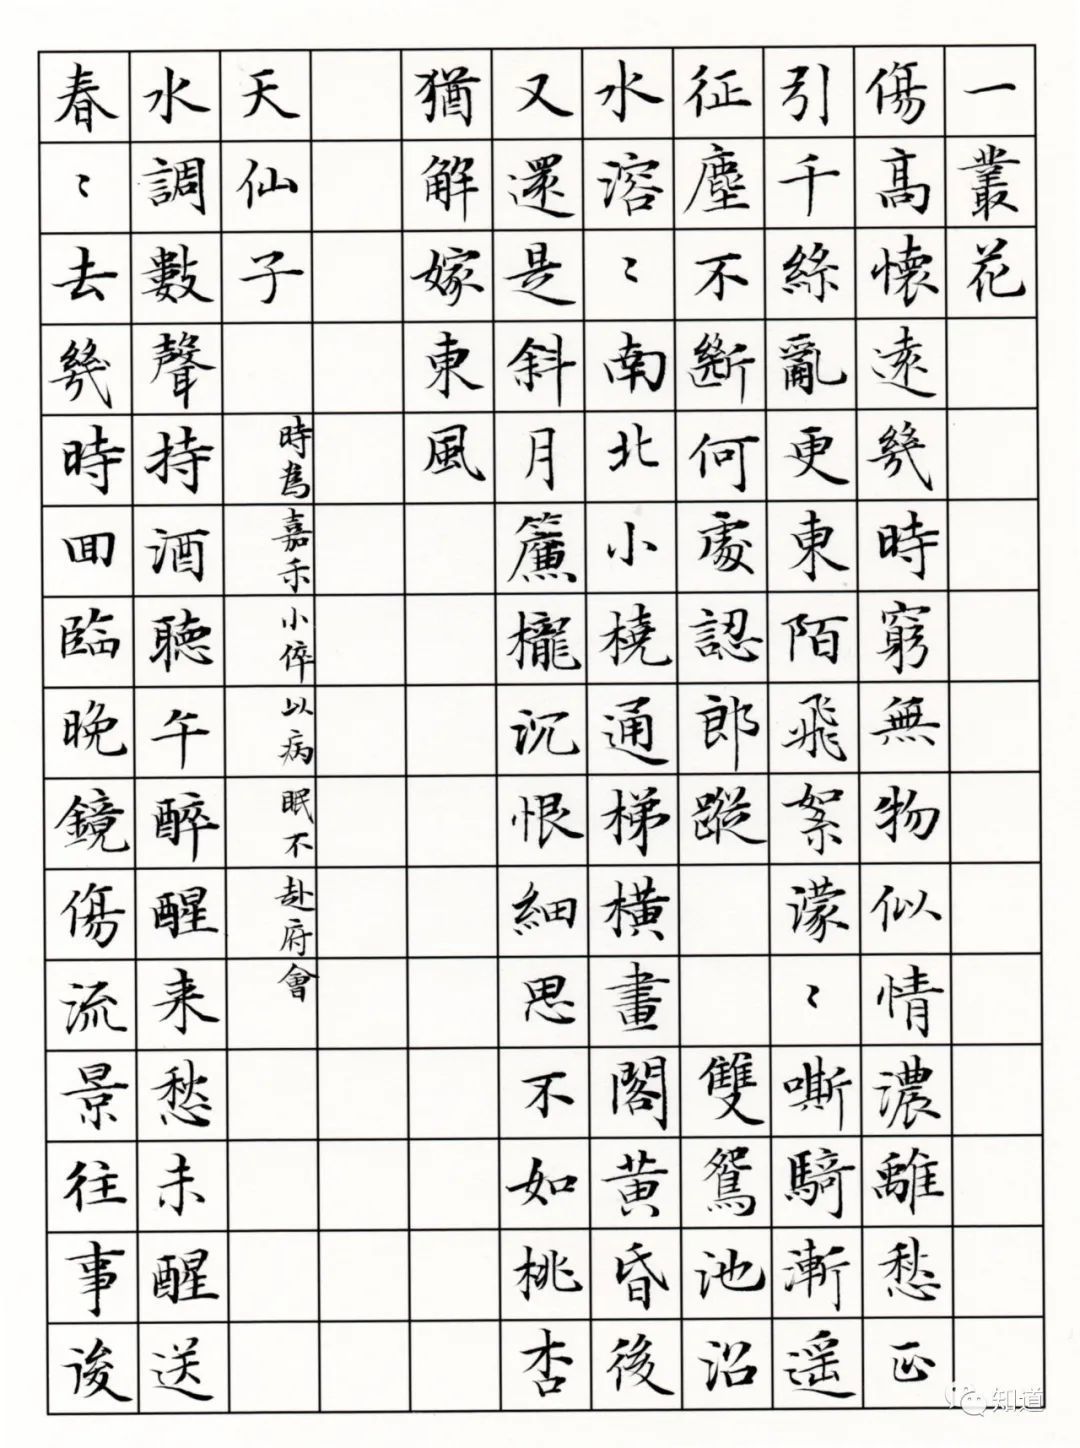 一叢花
傷高懷遠幾時窮無物似情濃離愁正
引千絲亂更東陌飛絮濛〻嘶騎漸遥
征塵不斷何處認郎蹤 雙鴛池沼
水溶〻南北小橈通梯橫畫閣黃昏後
又還是斜月簾櫳沉恨細思不如桃杏
猶解嫁東風
天仙子 時為嘉禾小倅以病眠不赴府會
水調數聲持酒聽午醉醒来愁未醒送
春〻去幾時囬臨晚鏡傷流景往事後
知道